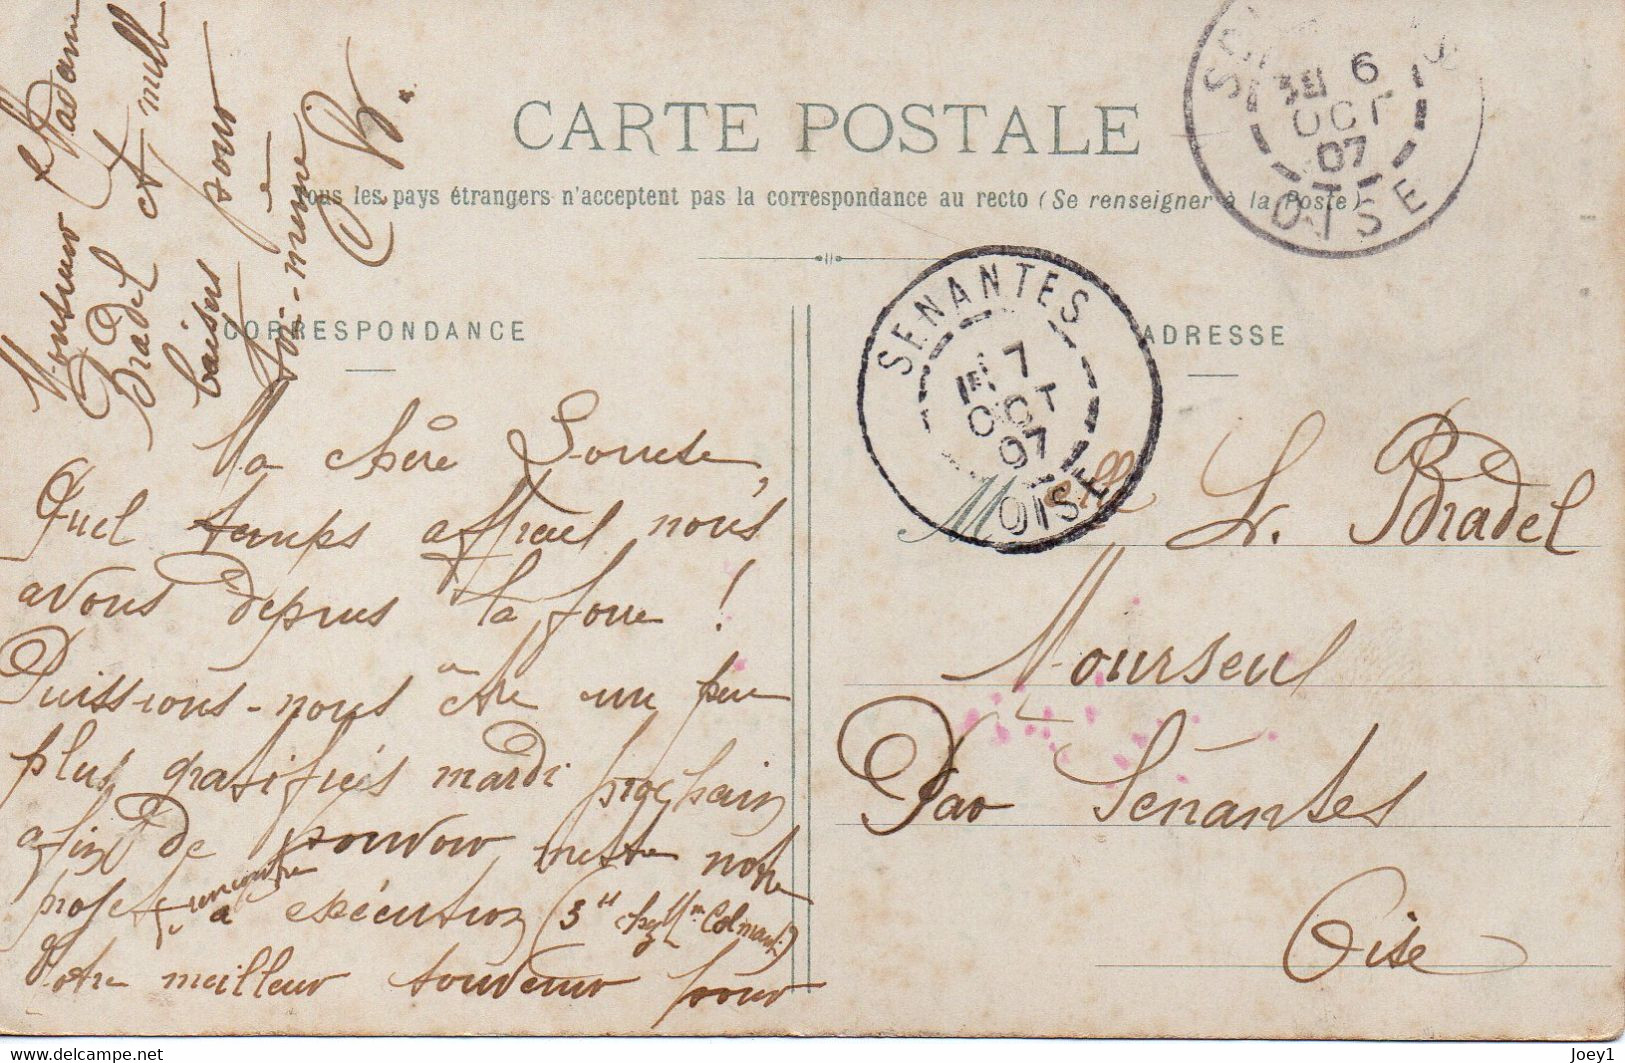 CARTE POSTALE
Tous les pays étrangers n'acceptent pas la correspondance au recto (Se renseigner à la Poste)
CORRESPONDANCE
Ma chère Louise,
Quel temps affreux nous
avons depuis la foire !
Puissions-nous être un peu
plus gratifiés mardi prochain
afin de pouvoir mettre notre
projet de rencontre à exécution (3 h chez Mme Colmant)
Notre meilleur souvenir pour
Monsieur & Madame
Bradel et mille
baisers pour
toi-même
ADRESSE
Melle L. Bradel
Mourseul
Par Sénantes
Oise
SENANTES
7
OCT
07
OISE
6
OCT
07
OISE
www.delcampe.net
Joey1